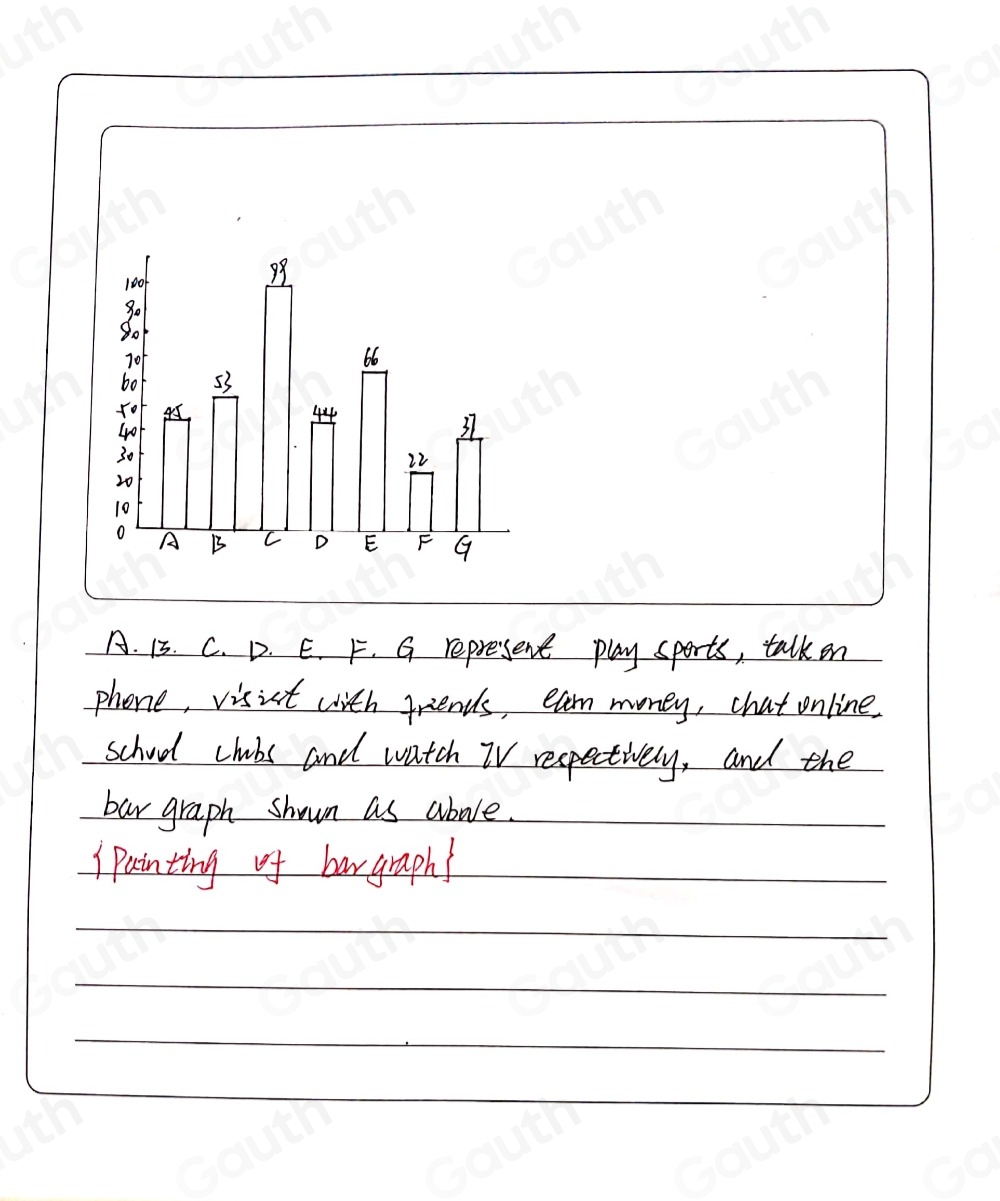 99
100
90
80
70
66
60
53
50
45
44
40
37
30
22
20
10
0
A B C D E F G
A. B. C. D. E. F. G represent play sports, talk on
phone, visist with friends, earn money, chat online.
school clubs and watch TV respectively, and the
bar graph shown as above.
{Painting of bar graph}
Gauth